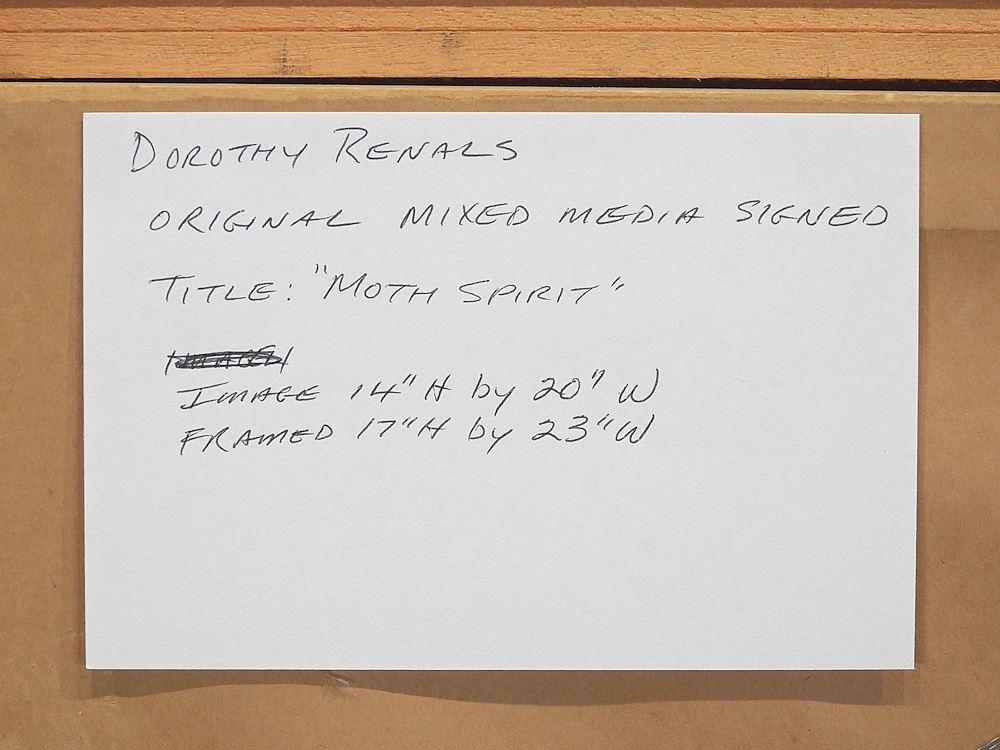 DOROTHY RENALS
ORIGINAL MIXED MEDIA SIGNED
TITLE: "MOTH SPIRIT"
IMAGE 14" H by 20" W
FRAMED 17" H by 23" W